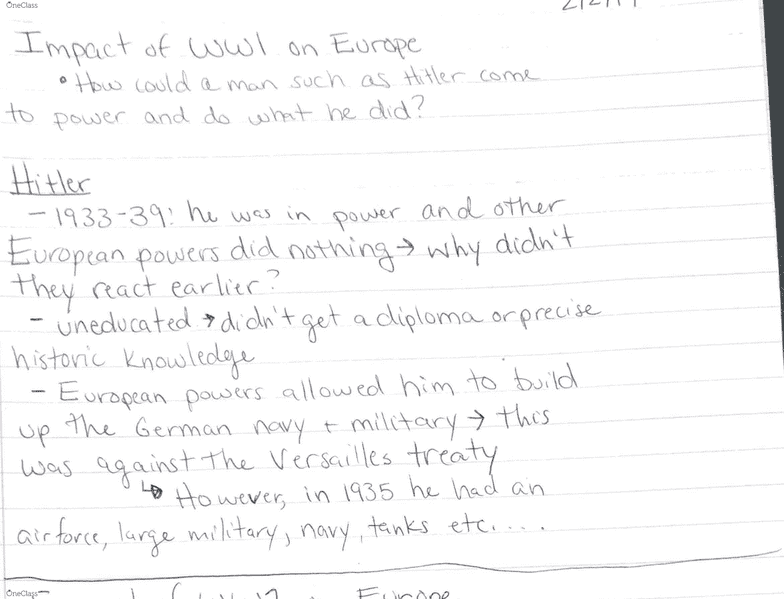 OneClass
Impact of WW1 on Europe
• How could a man such as Hitler come
to power and do what he did?
Hitler
- 1933-39: he was in power and other
European powers did nothing → why didn't
they react earlier?
- uneducated → didn't get a diploma or precise
historic knowledge
- European powers allowed him to build
up the German navy + military → this
was against the Versailles treaty
↳ However, in 1935 he had an
airforce, large military, navy, tanks etc....
OneClass
Europe